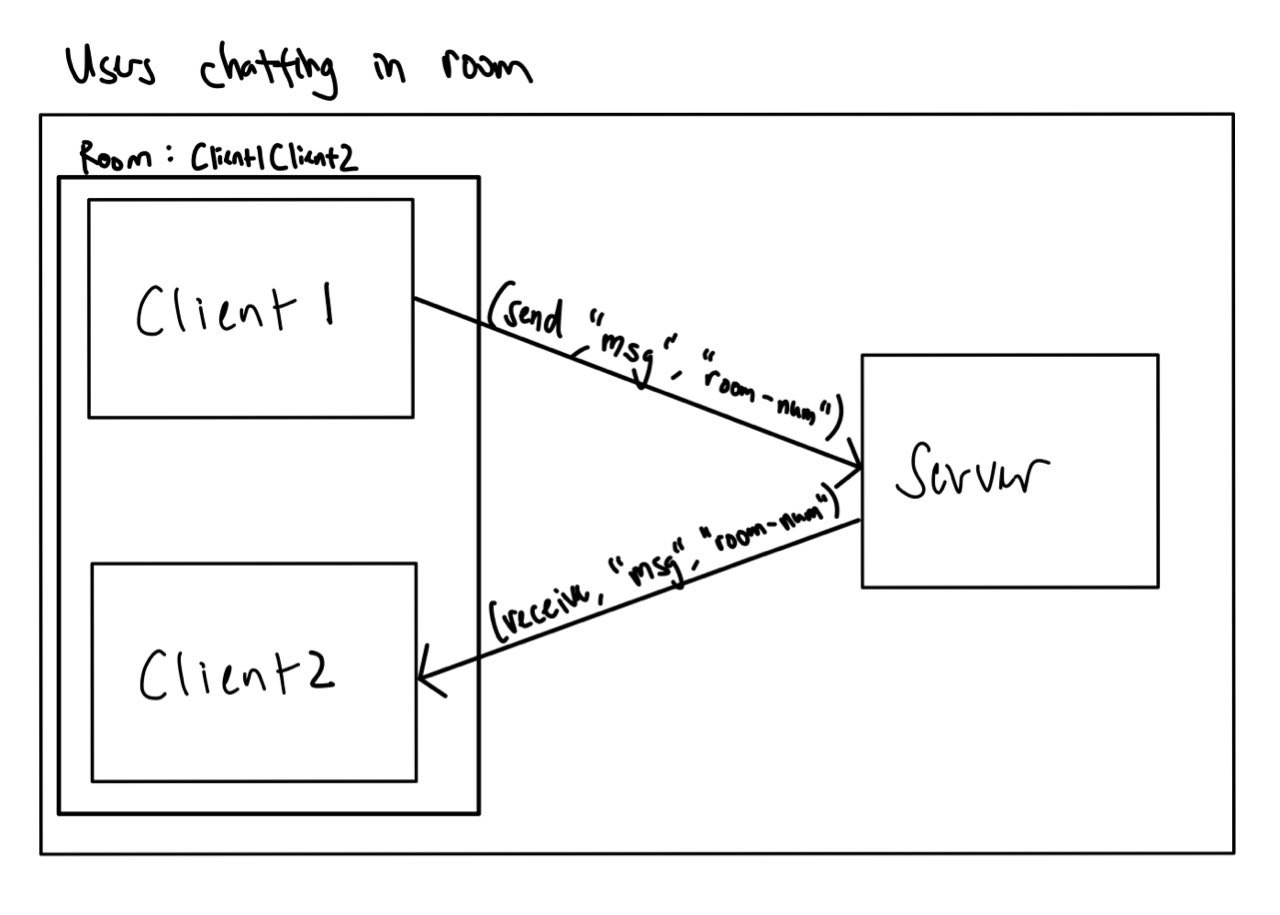 Users chatting in room
Room: Client1Client2
Client1
(send, "msg", "room-num")
Server
(receive, "msg", "room-num")
Client2